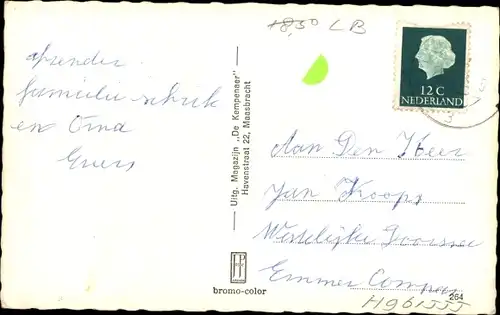 18,50 LB
Afzender
familie Schuk
en Oma
Emers
Uitg. Magazijn „De Kampenaer"
Havenstraat 22, Maasbracht
bromo-color
12 C
NEDERLAND
Aan Den Heer
Jan Koops
Westelijke Doorsnee
Emmer Compas
264
H961555